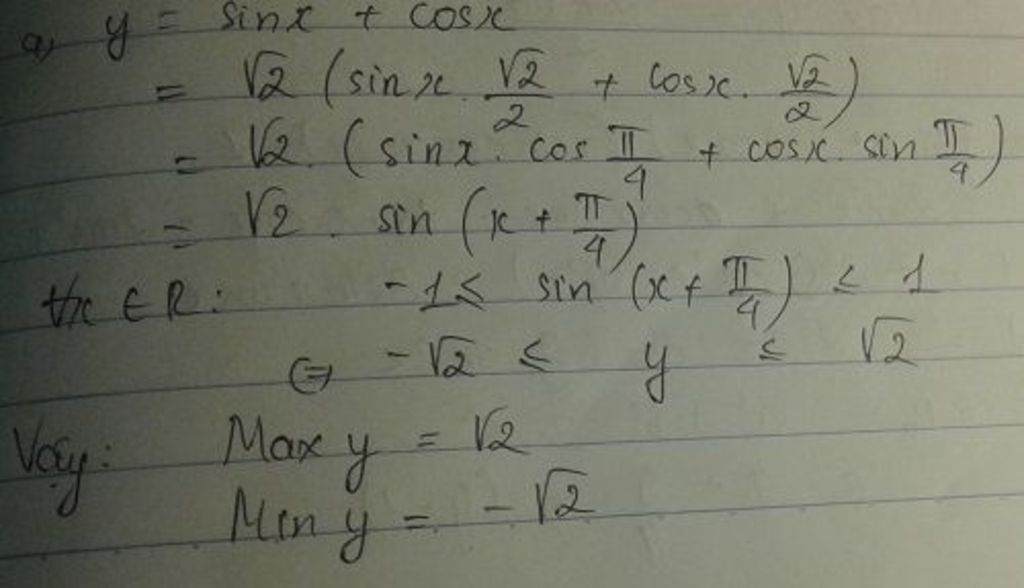 a) y = sinx + cosx
= √2 (sinx . √2/2 + cosx . √2/2)
= √2 . (sinx . cos π/4 + cosx . sin π/4)
= √2 . sin (x + π/4)
∀x ∈ R : -1 ≤ sin (x + π/4) ≤ 1
⇔ -√2 ≤ y ≤ √2
Vậy : Max y = √2
Min y = -√2